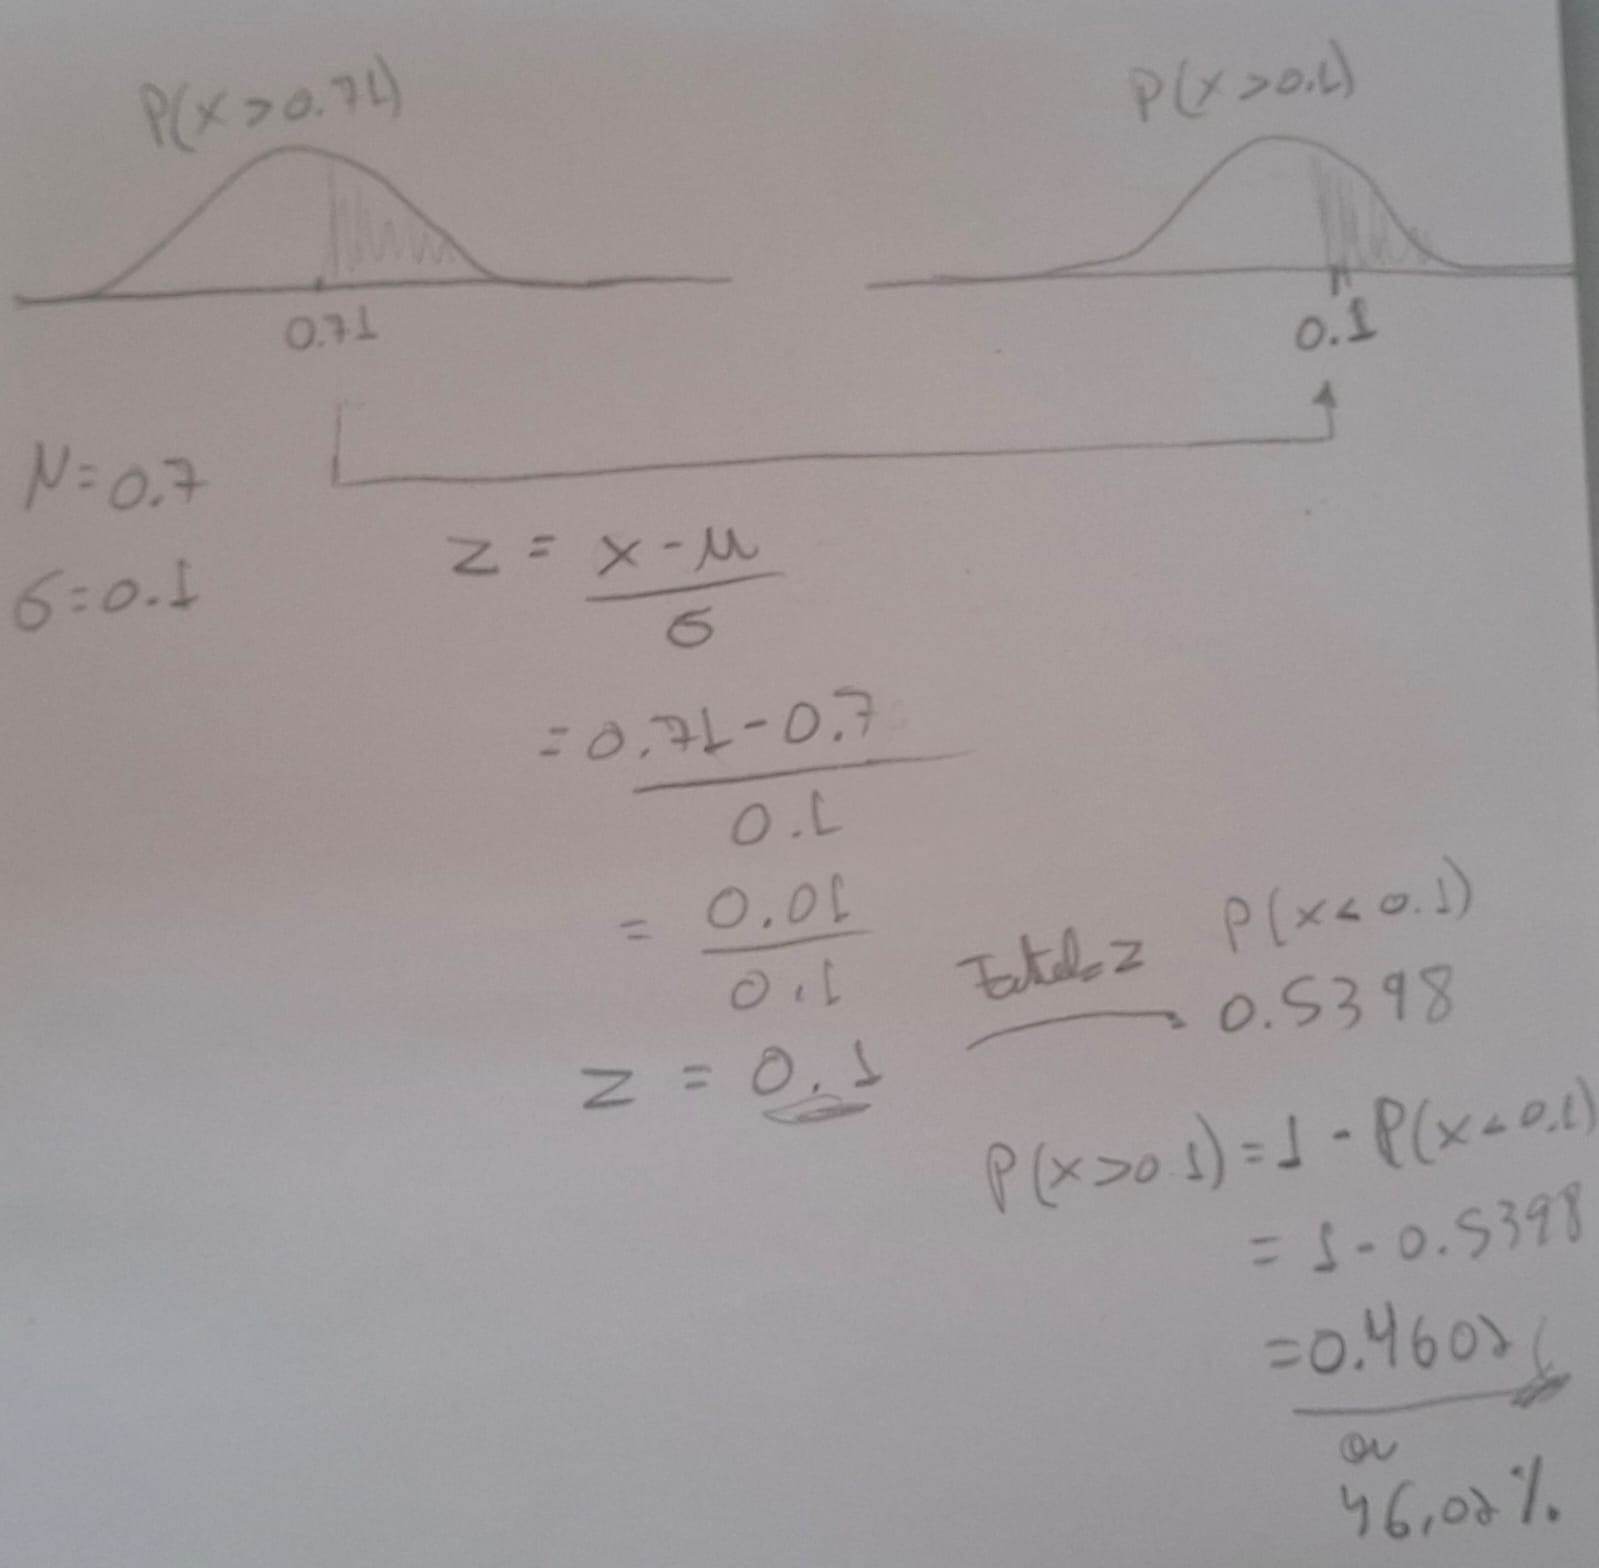 P(x > 0.71)
P(x > 0.1)
0.71
0.1
N = 0.7
σ = 0.1
z = x - μ
σ
= 0.71 - 0.7
0.1
= 0.01
0.1
z = 0.1
z
P(x < 0.1)
0.5398
P(x > 0.1) = 1 - P(x < 0.1)
= 1 - 0.5398
= 0.4602
ou
46,02%